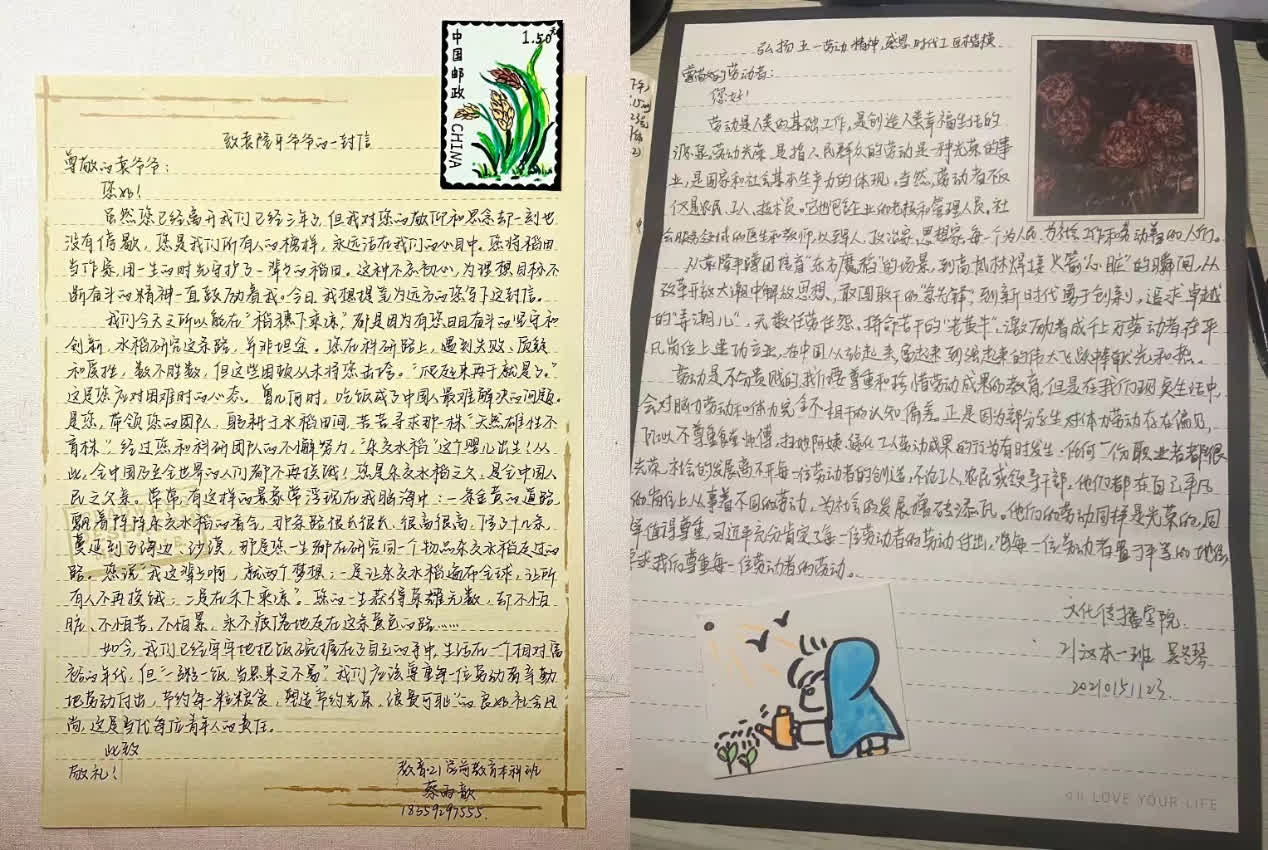 中国邮政
1.50元
CHINA
致袁隆平爷爷的一封信
尊敬的袁爷爷：
您好！
虽然您已经离开我们已经三年了，但我对您的敬仰和思念却一刻也
没有停歇，您是我们所有人的榜样，永远活在我们的心目中。您将稻田
当作家，用一生的时光守护了一辈子的稻田。这种不忘初心，为理想目标不
断奋斗的精神一直鼓励着我。今日，我想提笔为远方的您写下这封信。
我们今天之所以能在“稻穗下乘凉”，都是因为有您日日奋斗的坚守和
创新，水稻研究这条路，并非坦途。您在科研路上，遇到失败、质疑
和尴尬，数不胜数，但这些困难从未将您击垮。“爬起来再干就是了。”
这是您应对困难时的心态。曾几何时，吃饭成了中国最难解决的问题。
是您，带领您的团队，躬耕于水稻田间，苦苦寻求那一株“天然雄性不
育株”。经过您和科研团队的不懈努力，“杂交水稻”这个婴儿出生！从
此，全中国乃至全世界的人们都不再挨饿！您是杂交水稻之父，是全中国人
民之父亲。常常有这样的景象常浮现在我脑海中：一条金黄的道路
飘着阵阵杂交水稻的香会，那条路很长很长，很高很高，隔了十几米，
蔓延到了海边、沙漠，那是您一生都在研究同一个物品杂交水稻走过的
路。您说“我这辈子啊，就两个梦想：一是让杂交水稻遍布全球，让所
有人不再挨饿；二是在禾下乘凉”。您的一生获得英雄无数，却不怕
脏、不怕苦、不怕累，永不疲倦地走在这条黄色的路……
如今，我们已经牢牢地把饭碗握在了自己的手中，生活在一个相对富
裕的年代，但“一粥一饭，当思来之不易”。我们应该尊重每一位劳动者辛勤
地劳动付出，节约每一粒粮食，塑造“节约光荣，浪费可耻”的良好社会风
尚，这是当代每位青年人的责任。
此致
敬礼！
教育21学前教育本科班
蔡雨歆
18359297555
弘扬五一劳动精神，感恩时代工匠楷模
尊敬的劳动者：
您好！
劳动是人类的基础工作，是创造人类幸福生活的
源泉。劳动光荣，是指人民群众的劳动是一种光荣的事
业，是国家和社会基本生产力的体现。当然，劳动者不仅
仅是农民、工人、技术员。它也包含企业的老板和管理人员。社
会服务领域的医生和教师，以至军人、政治家、思想家，每一个为人民
从袁隆平蹲田培育“东方魔稻”的场景，到高凤林焊接火箭“心脏”的瞬间，从
改革开放大潮中解放思想，敢闯敢干的“急先锋”，到新时代勇于创新，追求卓越
的“弄潮儿”，无数任劳任怨，拼命苦干的“老黄牛”，激励着成千上万劳动者在平
凡岗位上建功立业，在中国从站起来、富起来到强起来的伟大飞跃中奉献光和热。
劳动是不分贵贱的，我们要尊重和珍惜劳动成果的教育，但是在我们现实生活中，
会对脑力劳动和体力完全不相干的认知偏差。正是因为部分学生对体力劳动存在偏见，
所以不尊重食堂师傅，扫地阿姨、绿化工人劳动成果的行为有时发生。任何一份职业者都很
光荣，社会的发展离不开每一位劳动者的创造，不论工人、农民或领导干部，他们都在自己平凡
的岗位上从事着不同的劳动，为社会的发展添砖添瓦。他们的劳动同样是光荣的，同
样值得尊重，习近平充分肯定了每一位劳动者的劳动付出，将每一位劳动者置于平等的地位，
要求我们尊重每一位劳动者的劳动。
文化传播学院
21汉本一班
20210151123
LOVE YOUR LIFE